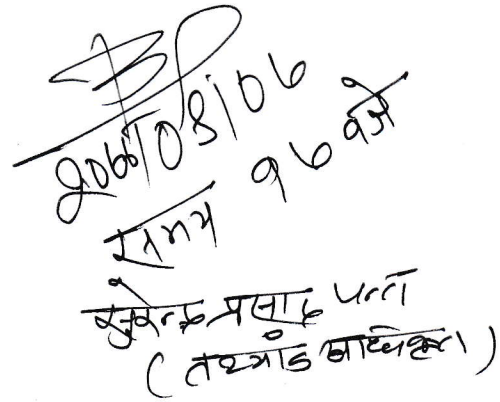 २०७७।०४।०७
समय १७ बजे
सुरेन्द्र प्रसाद पन्त
(तथ्यांङ्क